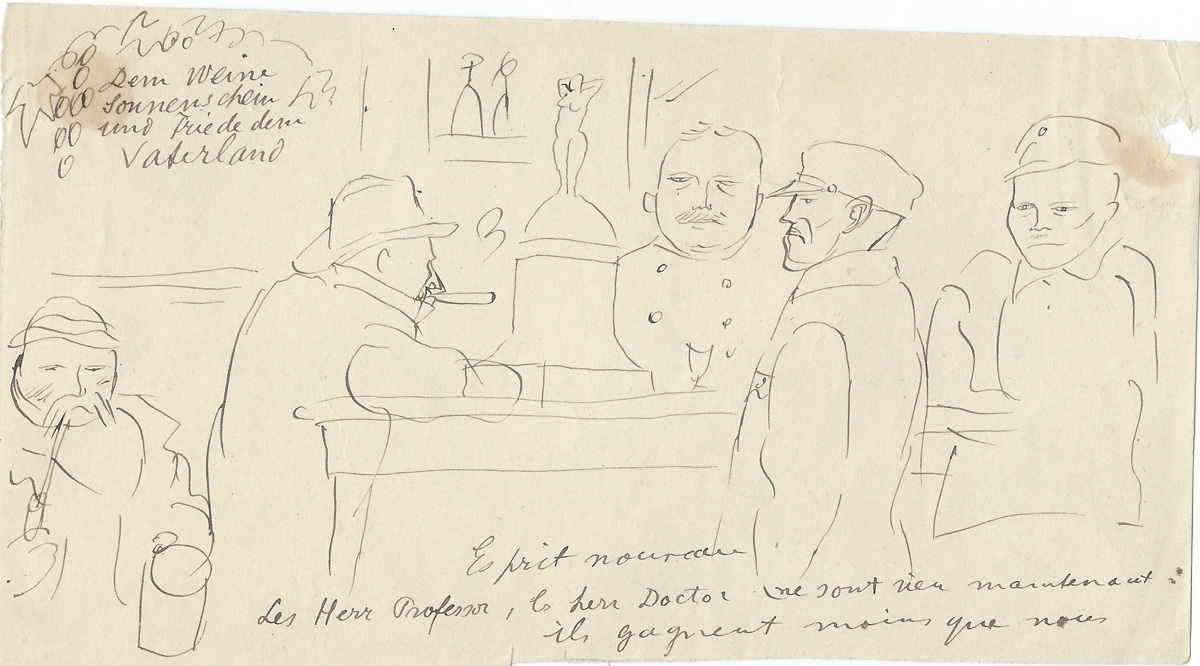 Dem Weine
Sonnenschein
und Friede dem
Vaterland
Esprit nouveau
Les Herr Professor, les herr Doctor ne sont rien maintenant :
ils gagnent moins que nous